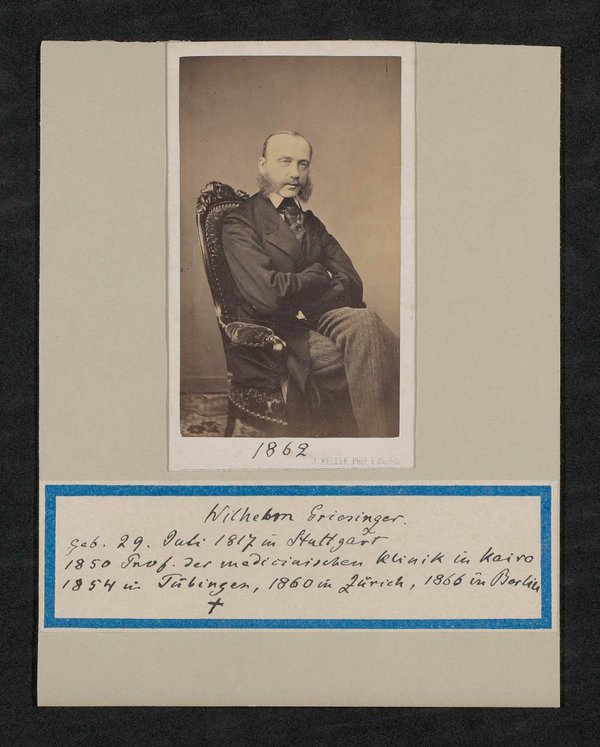 1862
J. KELLER, Phot. à Zürich.
Wilhelm Griesinger.
geb. 29. Juli 1817 in Stuttgart
1850 Prof. der medicinischen Klinik in Kairo
1854 in Tübingen, 1860 in Zürich, 1866 in Berlin
+